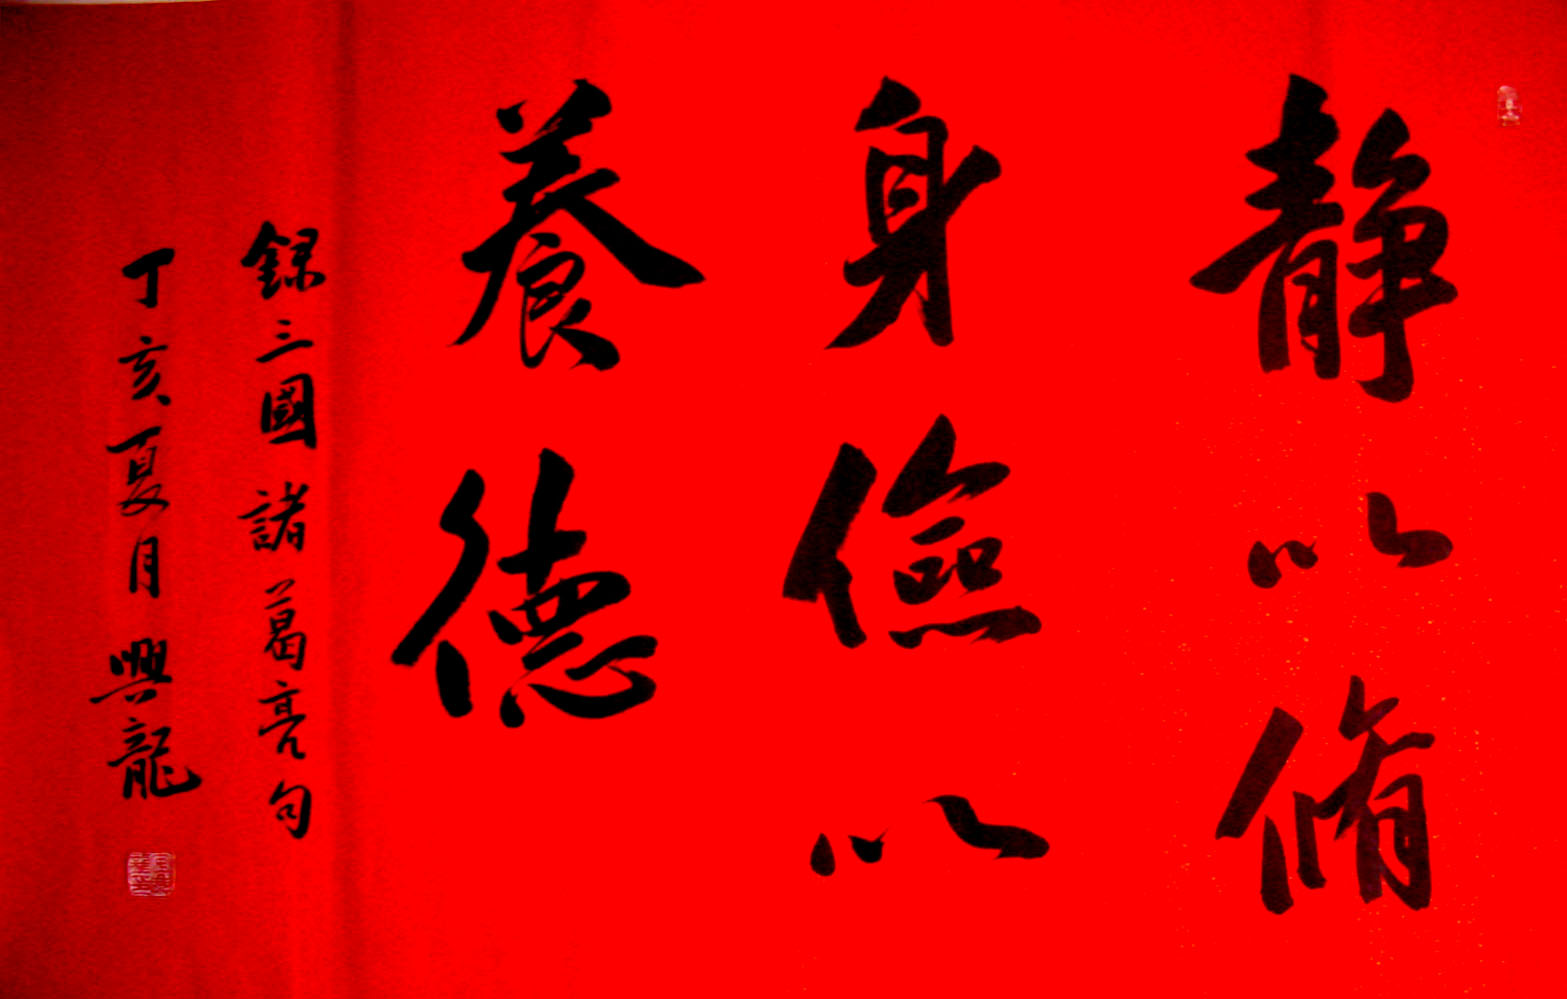 静以脩
身儉以
養德
録三國諸葛亮句
丁亥夏月興龍